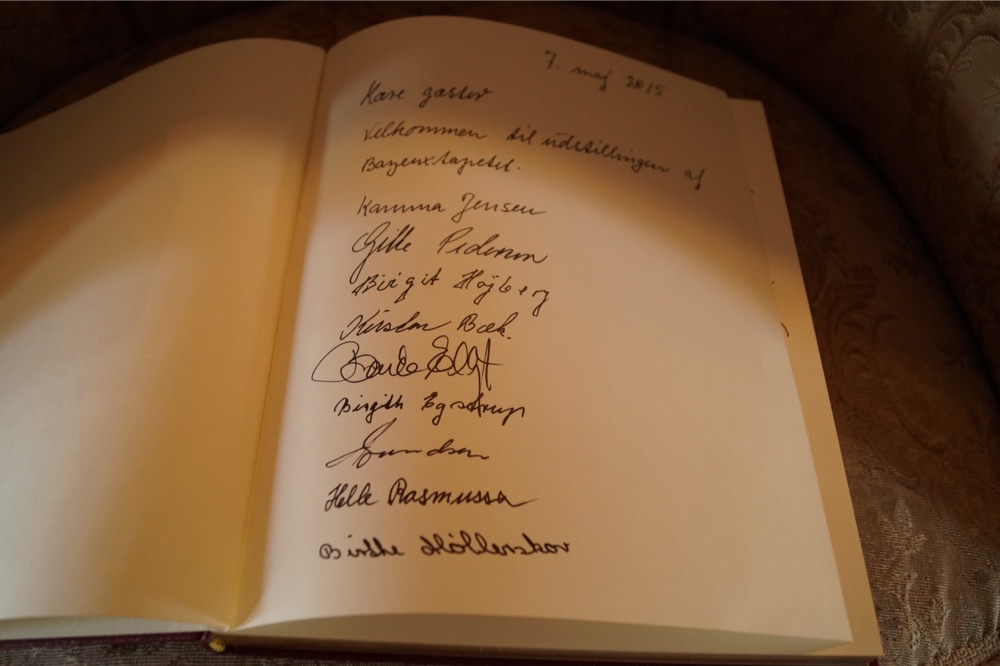 7. maj 2015
Kære gæster
Velkommen til udstillingen af
Bayeuxtapetet.
Kamma Jensen
Gitte Pedersen
Birgit Højberg
Kirsten Bæk.
Birgith Egstrup
Helle Rasmussen
Birthe Møllerskov